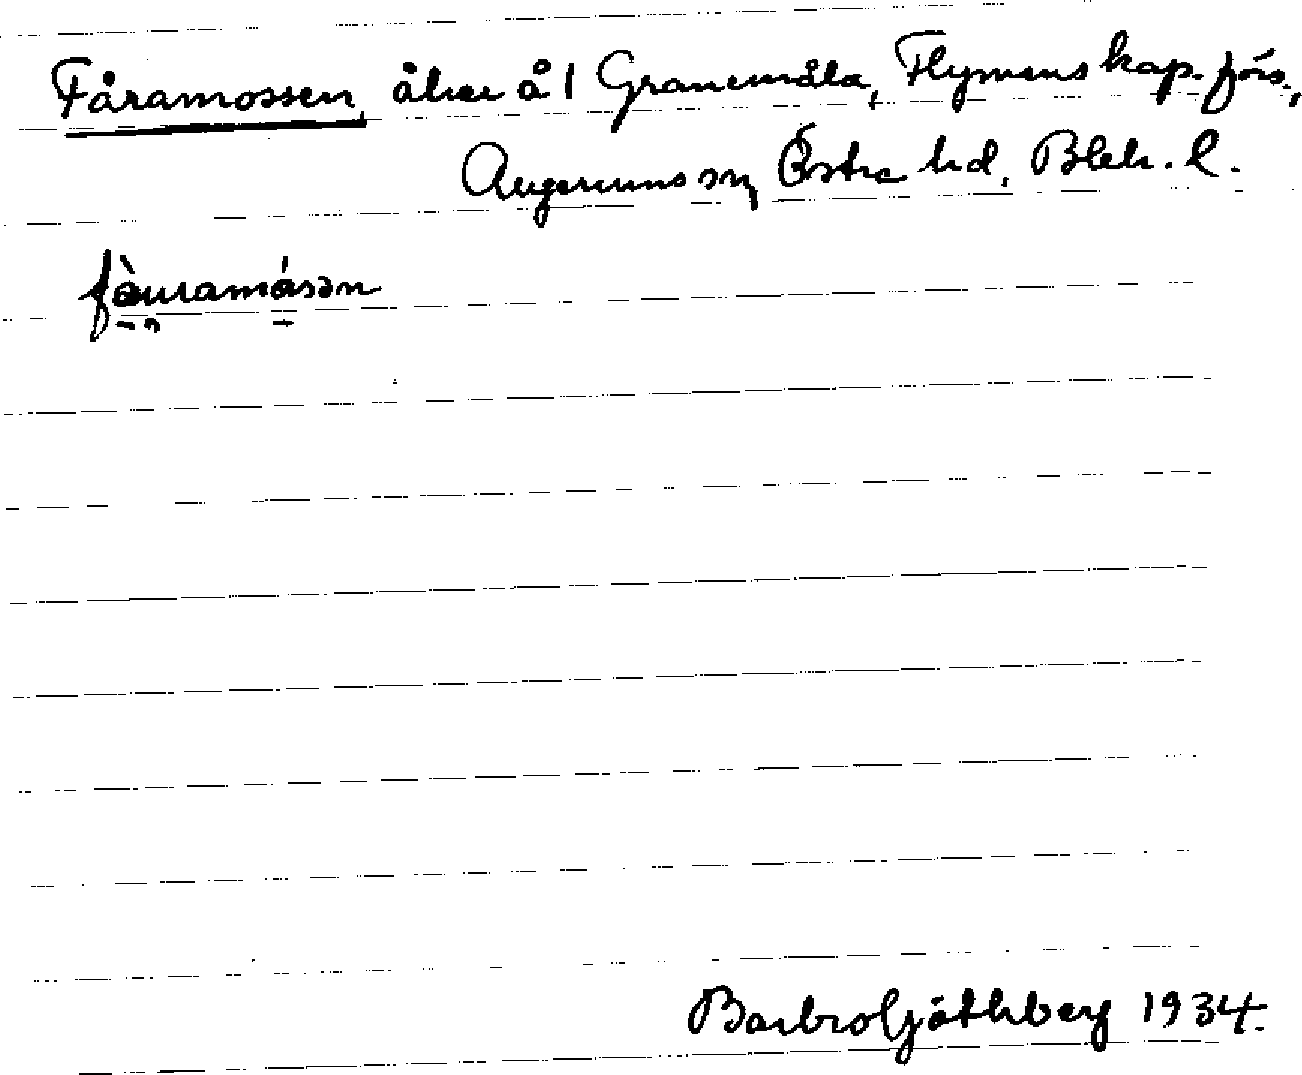 Fåramossen, åker å 1 Granemåla, Flymens kap. förs.,
Augerums sn, Östra hd, Blek. l.
fə̀uramásən
Barbro Göthberg 1934.